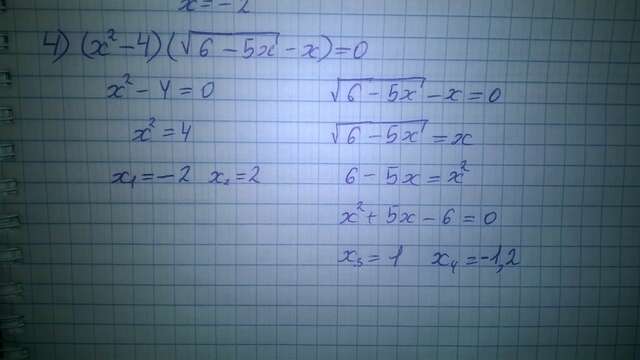 x = -2
4) (x² - 4)(√(6 - 5x) - x) = 0
x² - 4 = 0
x² = 4
x₁ = -2 x₂ = 2
√(6 - 5x) - x = 0
√(6 - 5x) = x
6 - 5x = x²
x² + 5x - 6 = 0
x₃ = 1 x₄ = -1,2